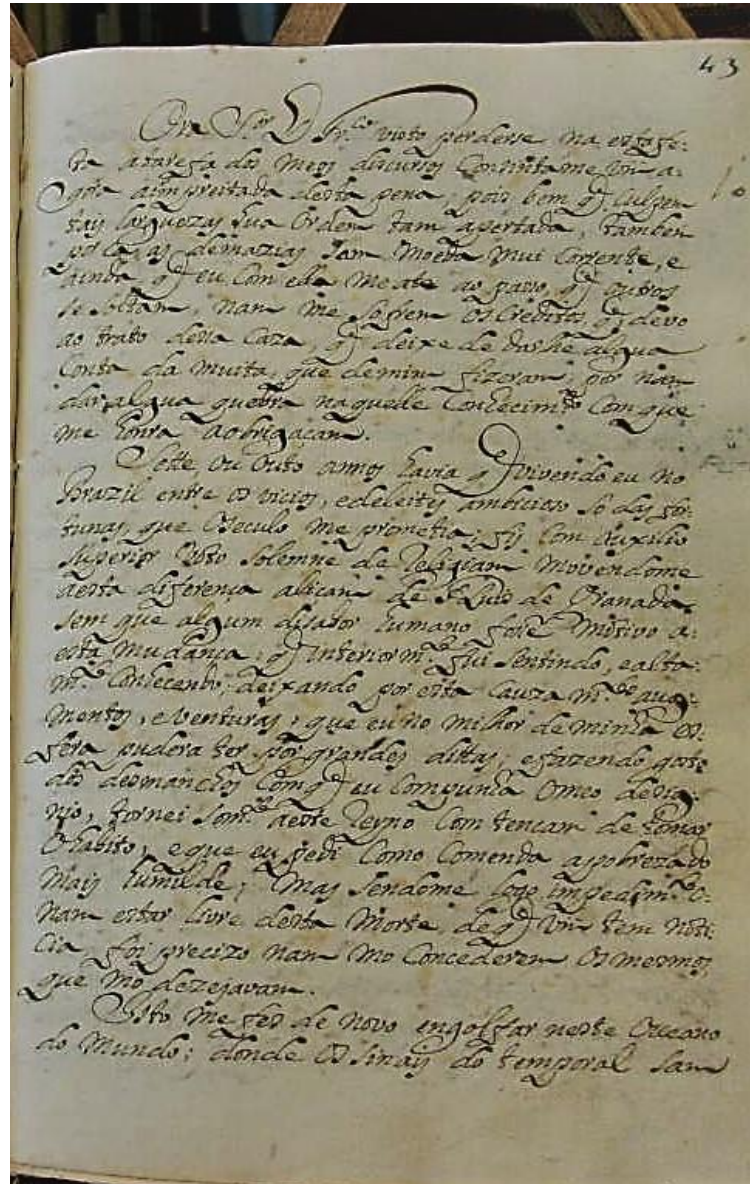 43
Ora Sñor D. Fr.co visto perderse na estafe:
ta a carega dos meos discursos Contintame vm a:
gora a impreitada desta pena, pois bem q̃
tais larguezas sua Ordem tam apertada, tambem
por ca as demazias sam Moeda mui Corrente, e
ainda q̃ eu Com ella me ate ao passo, q̃ outros
se soltam, nam me sofrem Os Creditos q̃ devo
ao trato dessa Caza, q̃ deixe de darlhe algua
Conta da muita, que demim fizeram, por nam
dar algua quebra naquelle Conhecim.to Com que
me honra a obrigacam.
Sette, ou Outo annos havia q̃ vivendo eu no
Brazil entre os vicios, e deleitis ambicioso só das for:
tunas, que Oseculo me prometia; fis Com auxilio
superior Voto solemne de Religiam Movendome
aesta diferença alicam de Fr Luis de Granada,
sem que algum disabor humano fose Motivo a:
esta mudança, q̃ interiorm.te fui sentindo, e alta:
m.te Conhecendo; deixando por esta Cauza m.tos aug:
mentos, e venturas, que eu no milhor de minha es:
fera pudera ter por grandes dittas, e fazendo gosto
dos desmanchos Com q̃ eu Compunha O meo
nio, tornei som.te aeste Reyno Com tencam de tomar
O habito, e que eu pedi Como Comenda a pobreza do
Mais humilde; Mas sendome logo impedim.to O:
nam estar livre desta Morte, de q̃ vm tem noti:
cia, foi precizo nam mo Concederem Os mesmos,
que mo dezejavam.
Isto me fes de novo engolfar neste Occeano
do Mundo; donde Os sinais do temporal sam